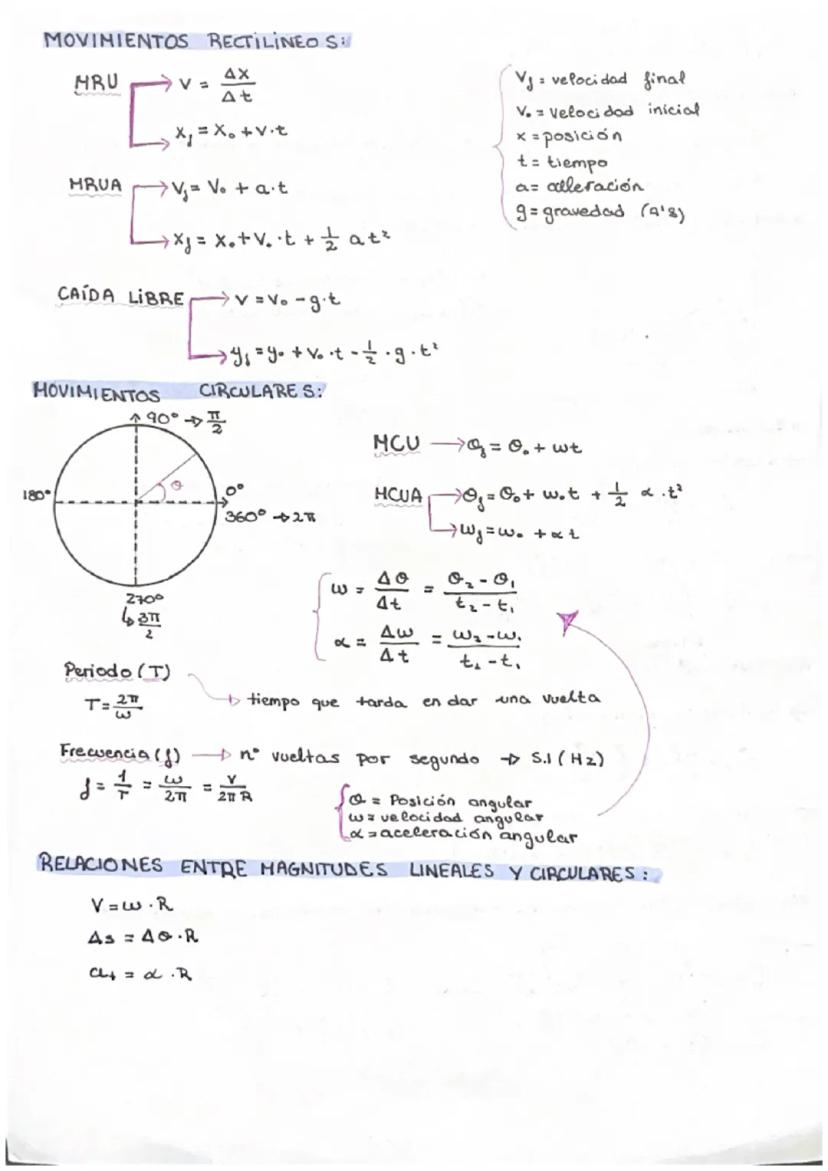 MOVIMIENTOS RECTILÍNEOS:
MRU → V = Δx/Δt
→ x_f = x₀ + v·t
MRUA → V_f = V₀ + a·t
→ x_f = x₀ + V₀·t + 1/2 a t²
V_f = velocidad final
V₀ = velocidad inicial
x = posición
t = tiempo
a = aceleración
g = gravedad (9'8)
CAÍDA LIBRE → v = v₀ - g·t
→ y_f = y₀ + v₀·t - 1/2·g·t²
MOVIMIENTOS CIRCULARES:
90° → π/2
180°
θ
0°
360° → 2π
270°
↳ 3π/2
MCU → θ_f = θ₀ + ωt
MCUA → θ_f = θ₀ + ω₀t + 1/2 α·t²
→ ω_f = ω₀ + αt
ω = Δθ/Δt = θ₂ - θ₁/t₂ - t₁
α = Δω/Δt = ω₂ - ω₁/t₂ - t₁
Periodo (T) → tiempo que tarda en dar una vuelta
T = 2π/ω
Frecuencia (f) → nº vueltas por segundo → S.I (Hz)
f = 1/T = ω/2π = v/2πR
θ = Posición angular
ω = velocidad angular
α = aceleración angular
RELACIONES ENTRE MAGNITUDES LINEALES Y CIRCULARES:
V = ω·R
Δs = Δθ·R
a_t = α·R